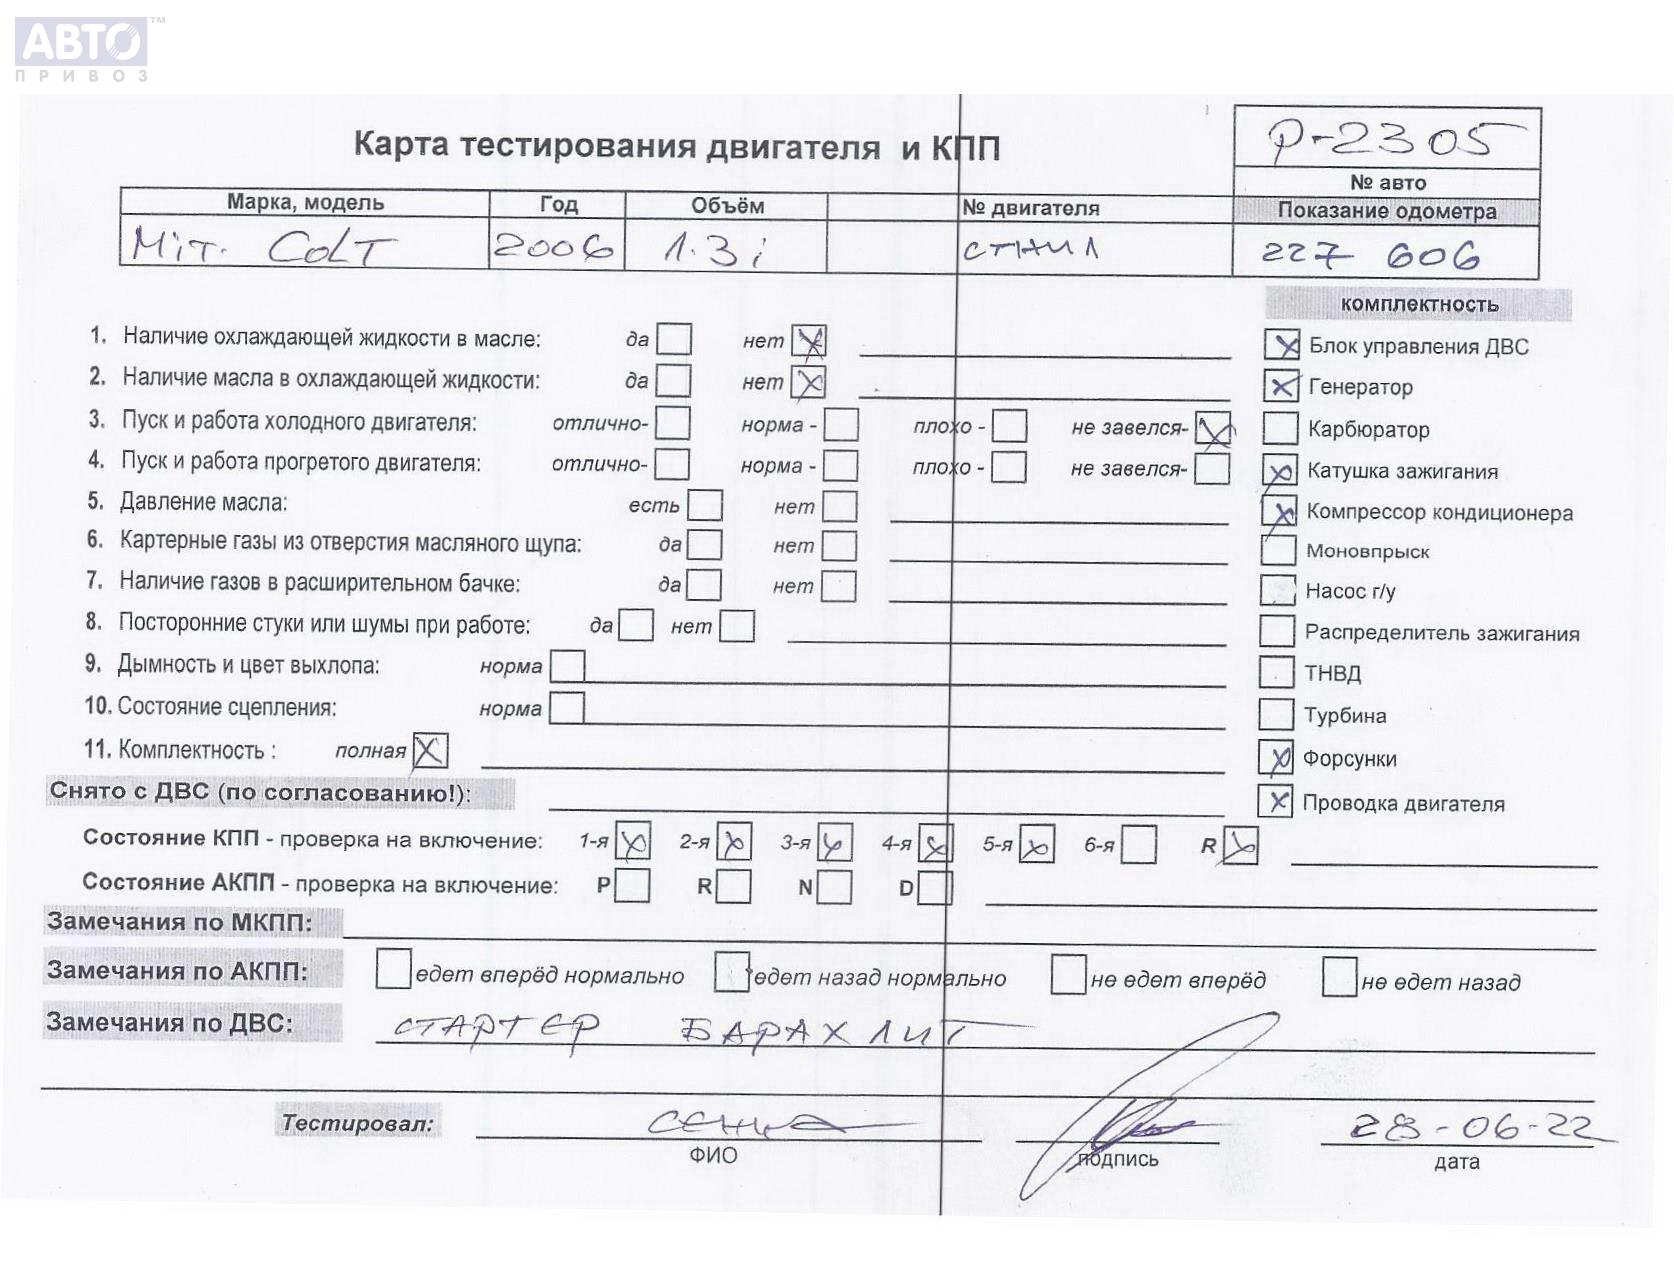 АВТО™
ПРИВОЗ
Карта тестирования двигателя и КПП
P-2305
№ авто
Марка, модель Год Объём № двигателя Показание одометра
Mit. Colt 2006 1.3i сгнил 227 606
комплектность
1. Наличие охлаждающей жидкости в масле: да нет X
Блок управления ДВС X
2. Наличие масла в охлаждающей жидкости: да нет X
Генератор X
3. Пуск и работа холодного двигателя: отлично- норма - плохо - не завелся- X
Карбюратор
4. Пуск и работа прогретого двигателя: отлично- норма - плохо - не завелся-
Катушка зажигания X
5. Давление масла: есть нет
Компрессор кондиционера X
6. Картерные газы из отверстия масляного щупа: да нет
Моновпрыск
7. Наличие газов в расширительном бачке: да нет
Насос г/у
8. Посторонние стуки или шумы при работе: да нет
Распределитель зажигания
9. Дымность и цвет выхлопа: норма
ТНВД
10. Состояние сцепления: норма
Турбина
11. Комплектность : полная X
Форсунки X
Снято с ДВС (по согласованию!):
Проводка двигателя X
Состояние КПП - проверка на включение: 1-я X 2-я X 3-я X 4-я X 5-я X 6-я R X
Состояние АКПП - проверка на включение: P R N D
Замечания по МКПП:
Замечания по АКПП: едет вперёд нормально едет назад нормально не едет вперёд не едет назад
Замечания по ДВС: СТАРТЕР БАРАХЛИТ
Тестировал: 28-06-22
ФИО подпись дата